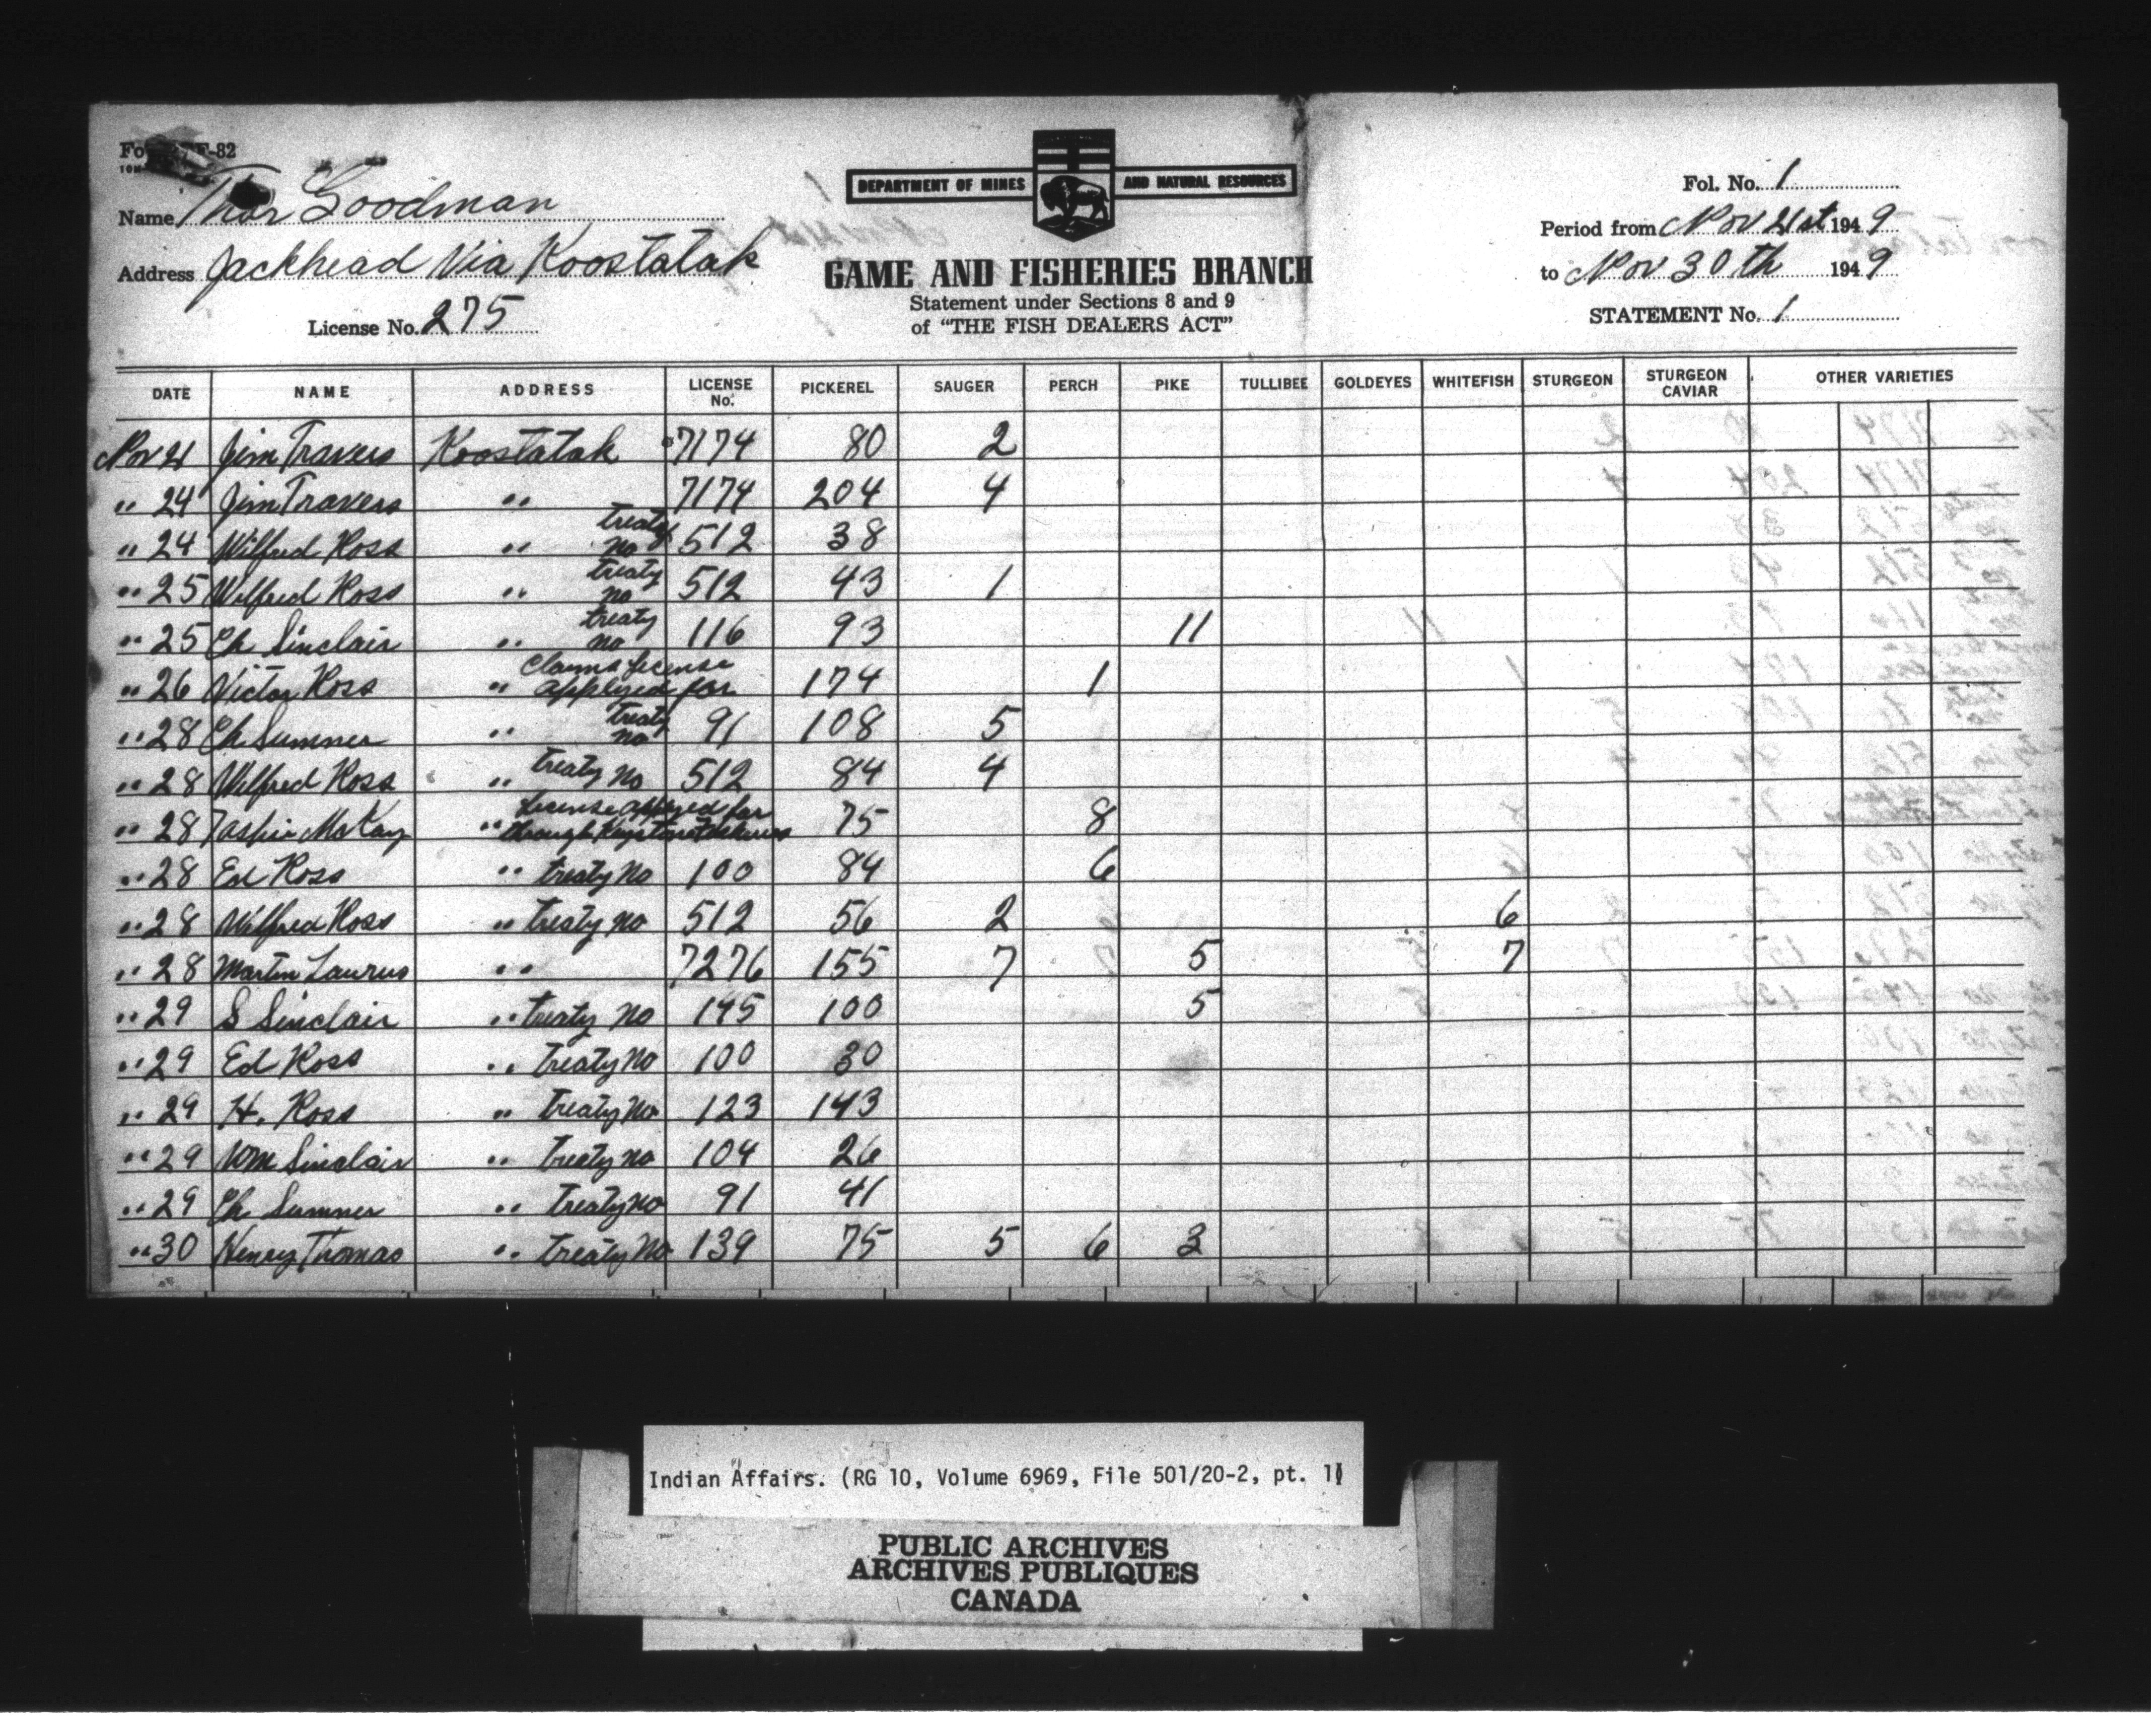 F-82
DEPARTMENT OF MINES AND NATURAL RESOURCES
GAME AND FISHERIES BRANCH
Statement under Sections 8 and 9
of "THE FISH DEALERS ACT"
Name Thor Goodman
Address Jackhead Via Koostatak
License No. 275
Fol. No. 1
Period from Nov 21st 1949
to Nov 30th 1949
STATEMENT No. 1
DATE NAME ADDRESS LICENSE No. PICKEREL SAUGER PERCH PIKE TULLIBEE GOLDEYES WHITEFISH STURGEON STURGEON CAVIAR OTHER VARIETIES
Nov 21 Jim Travers Koostatak 7174 80 2
" 24 Jim Travers " 7174 204 4
" 24 Wilfred Ross " treaty no 512 38
" 25 Wilfred Ross " treaty no 512 43 1
" 25 Ch Sinclair " treaty no 116 93 11
" 26 Victor Ross " Claims License applyed for 174 1
" 28 Ch Sumner " treaty no 91 108 5
" 28 Wilfred Ross " treaty no 512 84 4
" 28 McKay " License applyed for through Keystone Fisheries 75 8
" 28 Ed Ross " treaty no 100 84 6
" 28 Wilfred Ross " treaty no 512 56 2 6
" 28 Martin Laurus " 7276 155 7 5 7
" 29 S Sinclair " treaty no 145 100 5
" 29 Ed Ross " treaty no 100 30
" 29 H. Ross " treaty no 123 143
" 29 Wm Sinclair " treaty no 104 26
" 29 Ch Sumner " treaty no 91 41
" 30 Henry Thomas " treaty no 139 75 5 6 3
Indian Affairs. (RG 10, Volume 6969, File 501/20-2, pt. 1)
PUBLIC ARCHIVES
ARCHIVES PUBLIQUES
CANADA